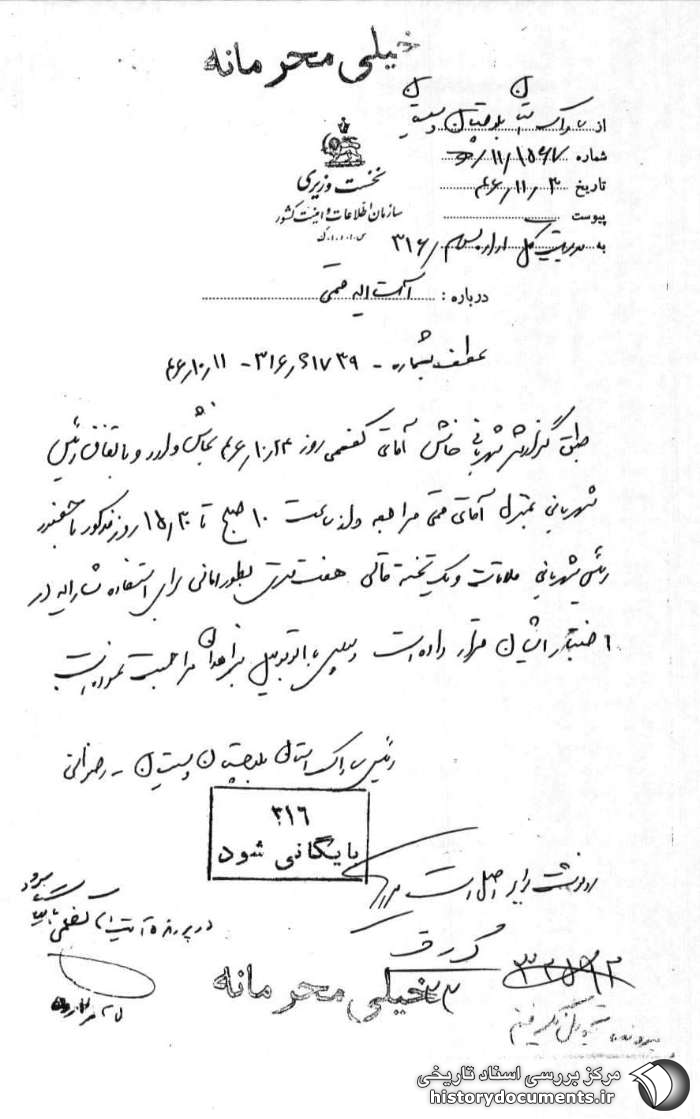 خیلی محرمانه
از ساواک استان بلوچستان و سیستان
شماره ۱۱/۱۵۶۷/
تاریخ ۴۶/۱۱/۳
پیوست
به مدیریت کل اداره سوم ۳۱۶
نخست وزیری
سازمان اطلاعات و امنیت کشور
س.ا.و.ا.ک
درباره : آیت اله قمی
عطف بشماره - ۳۱۶/۶۱۷۳۹ - ۴۶/۱۰/۱۱
طبق گزارش شهربانی خاش آقای کفعمی روز ۴۶/۱۰/۲۴ بخاش وارد و باتفاق رئیس
شهربانی بمنزل آقای قمی مراجعه و از ساعت ۱۰ صبح تا ۱۵/۳۰ روز مذکور با حضور
رئیس شهربانی ملاقات و یک تخته قالی هفت متری بطور امانی برای استفاده مشارالیه در
اختیار ایشان قرار داده است و سپس با اتومبیل بزاهدان مراجعت نموده است
رئیس ساواک استان بلوچستان و سیستان -
۳۱۶
بایگانی شود
رونوشت برابر اصل است
در پرونده آیت اله کفعمی بایگانی شود
خیلی محرمانه
۳۳
مرکز بررسی اسناد تاریخی
historydocuments.ir